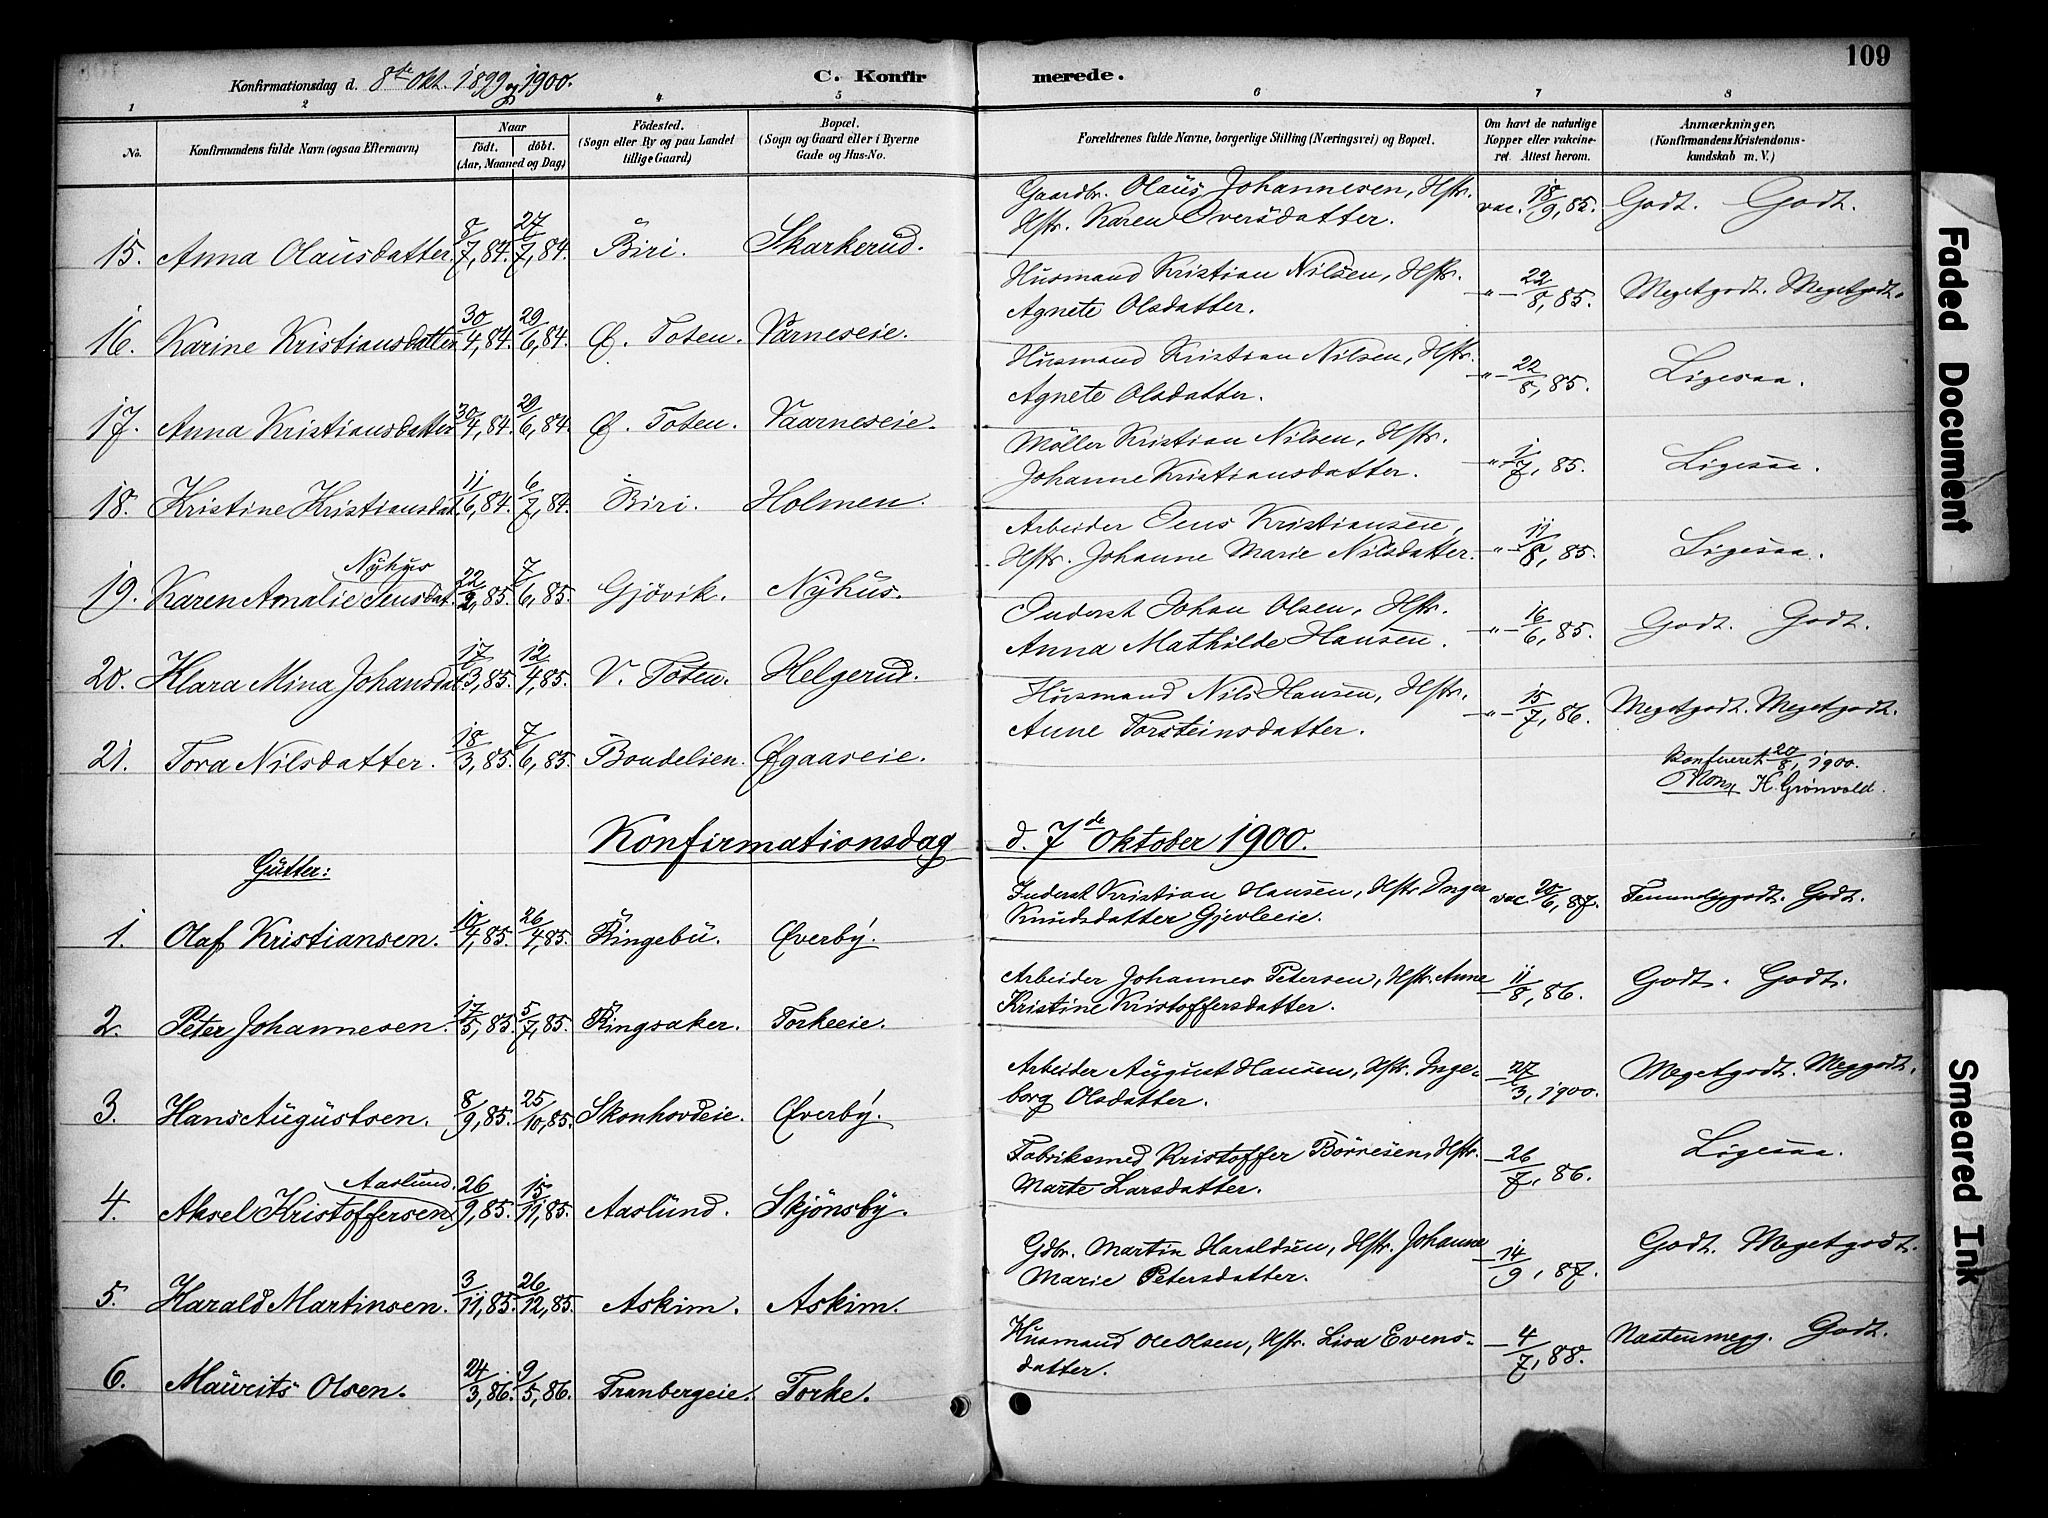 109
Konfirmationsdag d. 8de Okt. 1899 og 1900.
C. Konfirmerede.
1 2 3 4 5 6 7 8
No.
Konfirmandens fulde Navn (ogsaa Efternavn)
Naar
födt. döbt.
(Aar, Maaned og Dag)
Födested.
(Sogn eller By og paa Landet
tillige Gaard)
Bopæl.
(Sogn og Gaard eller i Byerne
Gade og Hus-No.
Forældrenes fulde Navne, borgerlige Stilling (Næringsvei) og Bopæl.
Om havt de naturlige
Kopper eller vakcine-
ret. Attest herom.
Anmærkninger.
(Konfirmandens Kristendoms-
kundskab m. V.)
Gaardbr. Olaus Johannesen, Hstr.
Hstr. Karen Iversdatter. vac. 18/9, 85. Godt. Godt.
15. Anna Olausdatter. 8/7, 84. 27/7, 84. Biri. Skarkerud.
Husmand Kristian Nilsen, Hstr.
Agnete Olsdatter. -"- 22/8, 85. Megetgodt. Megetgodt.
16. Karine Kristiansdatter 30/4, 84. 29/6, 84. Ø. Toten. Varneseie.
Husmand Kristian Nilsen, Hstr.
Agnete Olsdatter. -"- 22/8, 85. Ligesaa.
17. Anna Kristiansdatter 30/4, 84. 29/6, 84. Ø. Toten. Vaarneseie.
Möller Kristian Nilsen, Hstr.
Johanne Kristiansdatter. -"- 1/7, 85. Ligesaa.
18. Kristine Kristiansdat. 11/6, 84. 6/7, 84. Biri. Holmen.
Arbeider Jens Kristiansen,
Hstr. Johanne Marie Nilsdatter. -"- 11/8, 85. Ligesaa.
Nyhus
19. Karen Amalie Jensdat. 22/2, 85. 7/6, 85. Gjövik. Nyhus.
Inderst Johan Olsen, Hstr.
Anna Mathilde Hansen. -"- 16/6, 85. Godt. Godt.
20. Klara Mina Johansdat. 17/3, 85. 12/4, 85. V. Toten. Helgerud.
Husmand Nils Hansen, Hstr.
Anne Torsteinsdatter. -"- 15/7, 86. Megetgodt. Megetgodt.
21. Tora Nilsdatter. 18/3, 85. 7/6, 85. Bondelien. Øgaaseie.
Konfereret 20/8, 1900.
H. Grönvold.
Konfirmationsdag d. 7de Oktober 1900.
Gutter:
Inderst Kristian Hansen, Hstr. Inger
Knudsdatter Gjevleeie. vac 20/6, 87. Temmeliggodt. Godt.
1. Olaf Kristiansen. 10/4, 85. 26/4, 85. Ringebu. Øverby.
Arbeider Johannes Petersen, Hstr. Anne
Kristine Kristoffersdatter. — 11/8, 86. Godt. Godt.
2. Peter Johannesen. 17/5, 85. 5/7, 85. Ringsaker. Torkeeie.
Arbeider August Hansen, Hstr. Inge-
borg Olsdatter. — 27/3, 1900. Megetgodt. Meggodt.
3. Hans Augustsen. 8/9, 85. 25/10, 85. Skonhovdeie. Øverby.
Fabriksmed Kristoffer Börresen, Hstr.
Marte Larsdatter. — 26/7, 86. Ligesaa.
Aaslund.
4. Aksel Kristoffersen 26/9, 85. 15/11, 85. Aaslund. Skjönsby.
Gdbr. Martin Haraldsen, Hstr. Johanne
Marie Petersdatter. — 14/9, 87. Godt. Megetgodt.
5. Harald Martinsen. 3/11, 85. 26/12, 85. Askim. Askim.
Husmand Ole Olsen, Hstr. Lisa Evens-
datter. — 4/7, 88. Næstenmegg. Godt.
6. Maurits Olsen. 24/3, 86. 9/5, 86. Tranbergeie. Torke.
Faded Document
Smeared Ink